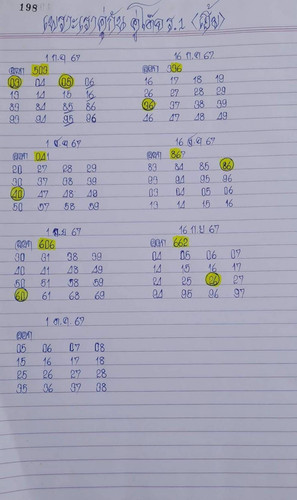 198
เพราะเราคู่กัน
1 ก.ค. 67
16 ก.ค. 67
ออก 503
03 04 05 06
13 14 15 16
83 84 85 86
93 94 95 96
ออก 396
16 17 18 19
26 27 28 29
96 97 98 99
46 47 48 49
1 ส.ค. 67
16 ส.ค. 67
ออก 041
20 27 28 29
30 37 38 39
40 47 48 49
50 57 58 59
ออก 867
83 84 85 86
93 94 95 96
03 04 05 06
13 14 15 16
1 ก.ย. 67
16 ก.ย. 67
ออก 606
30 31 38 39
40 41 48 49
50 51 58 59
60 61 68 69
ออก 662
04 05 06 07
14 15 16 17
24 25 26 27
94 95 96 97
1 ต.ค. 67
ออก
05 06 07 08
15 16 17 18
25 26 27 28
95 96 97 98